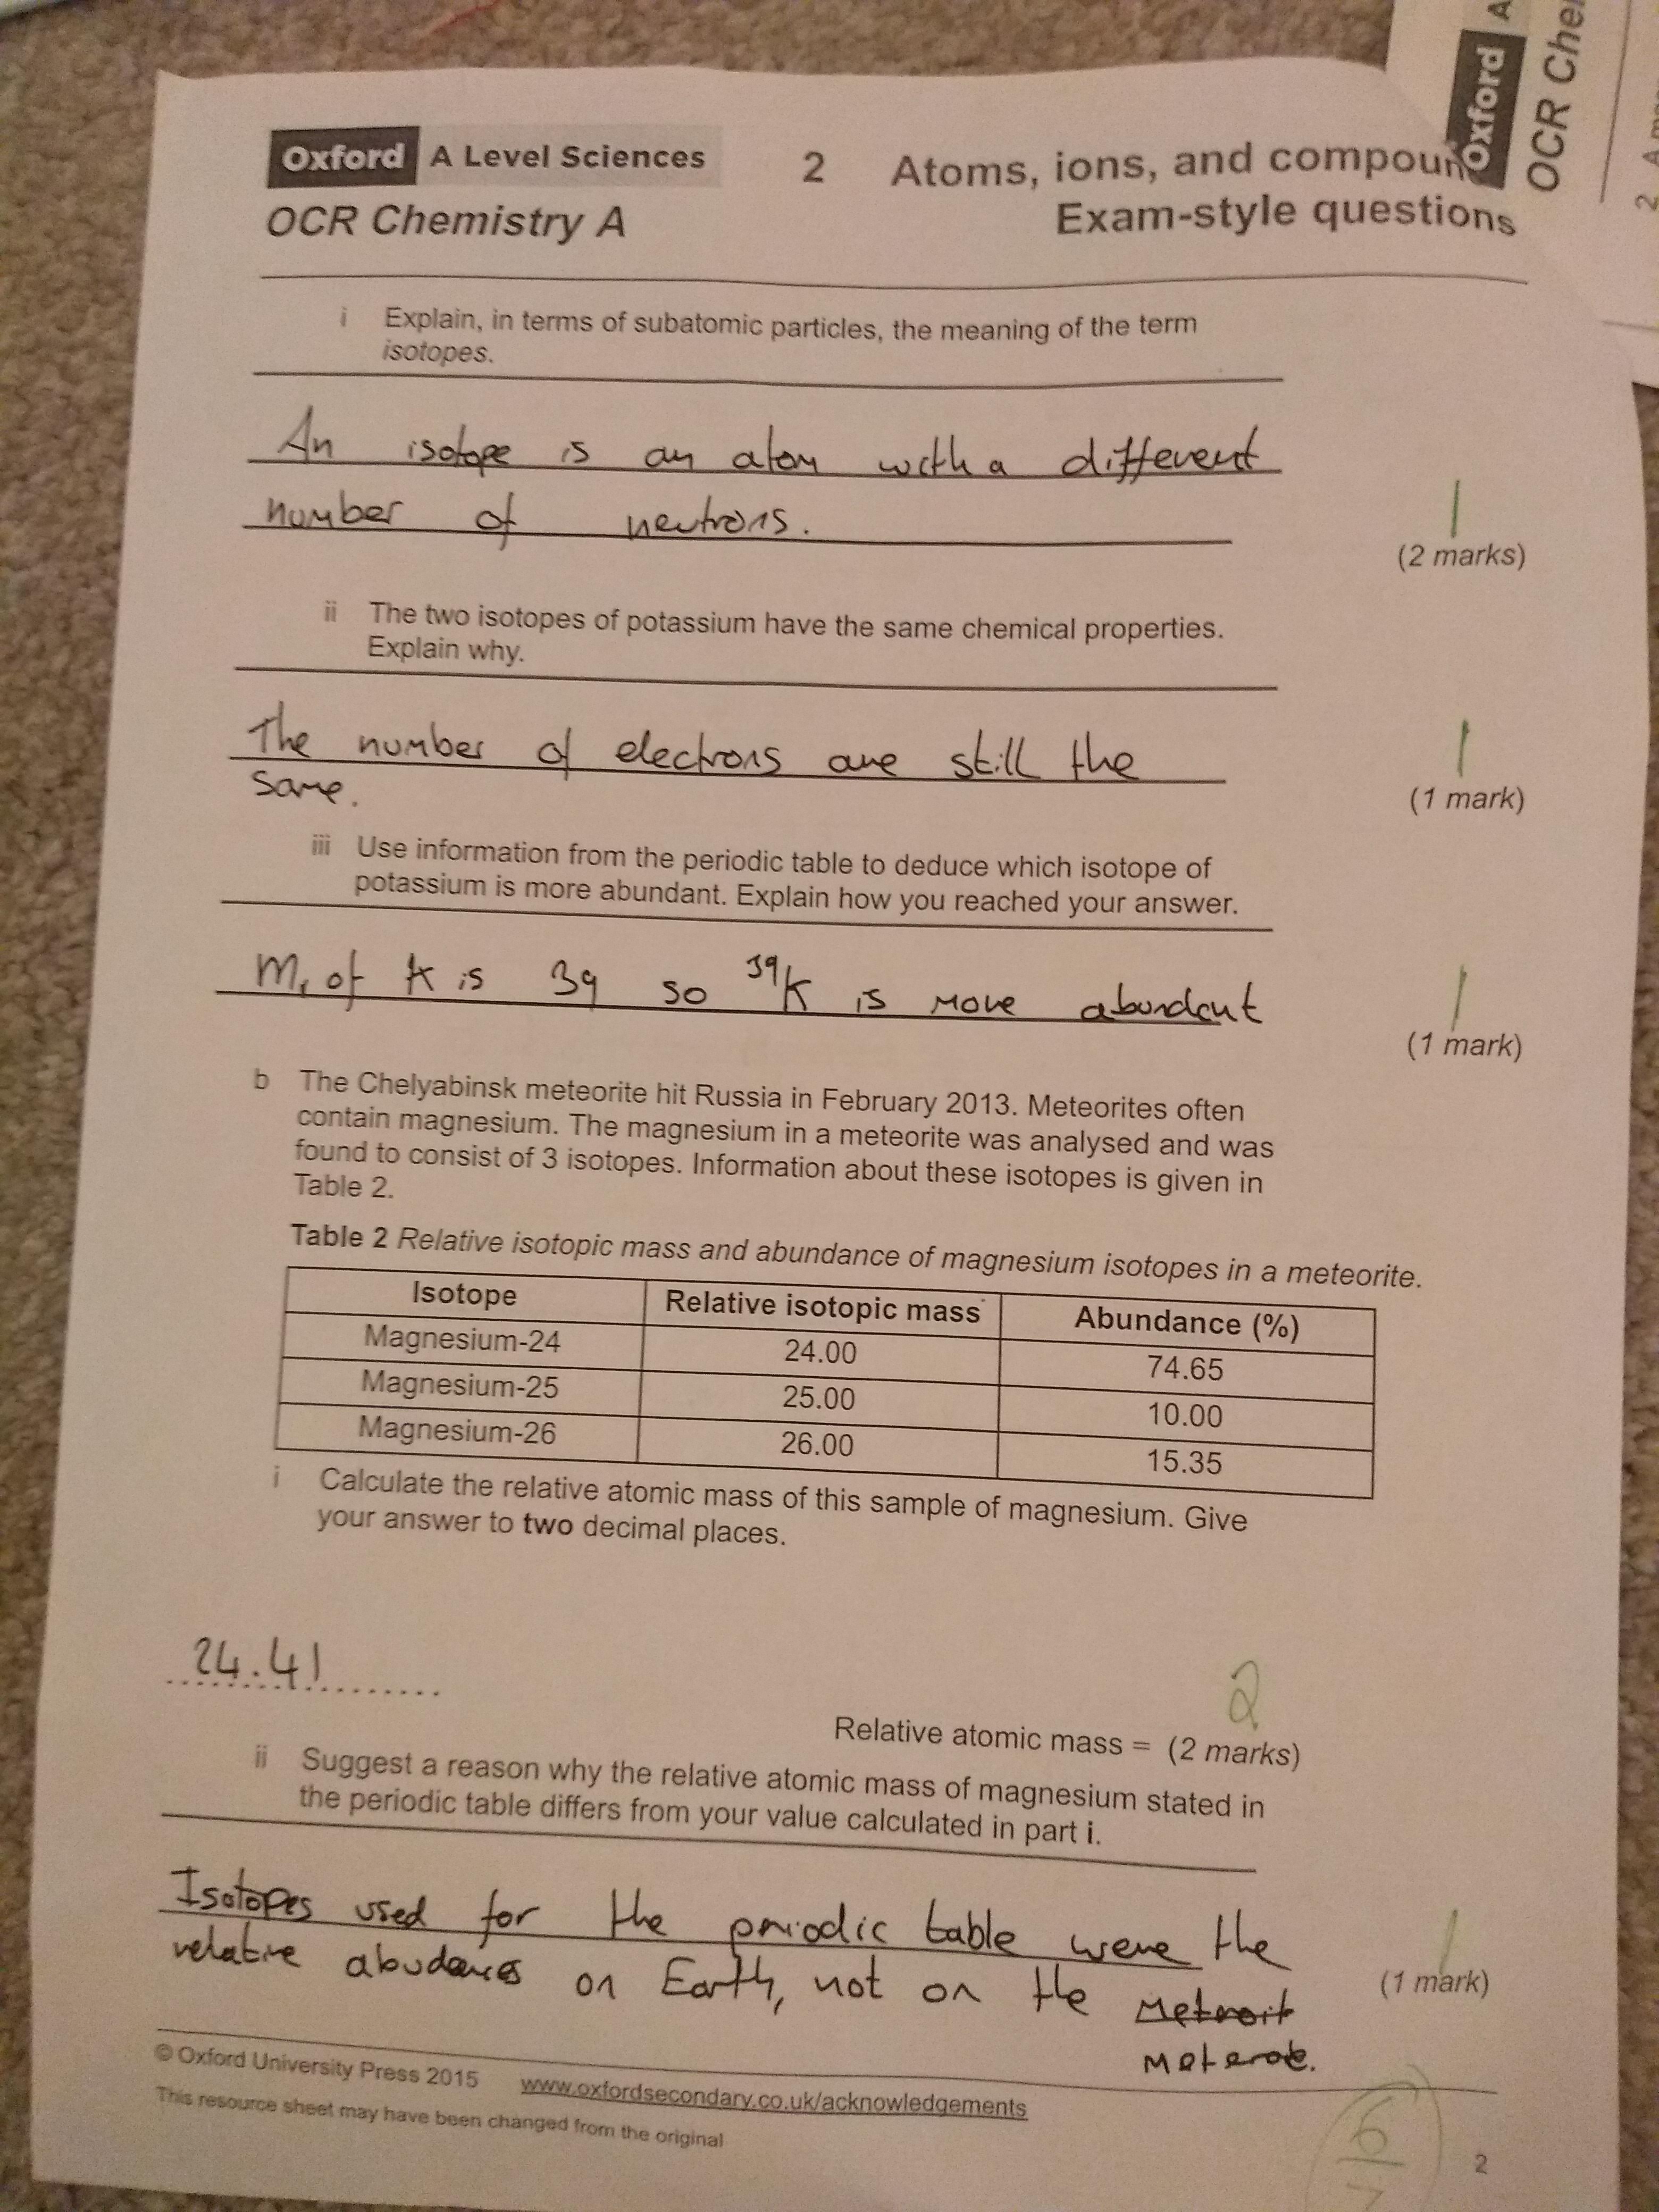 Oxford A Level Sciences
OCR Chemistry A
2 Atoms, ions, and compoun
Exam-style questions
Oxford A
OCR Cher
2
i Explain, in terms of subatomic particles, the meaning of the term
isotopes.
An isotope is an atom with a different
number of neutrons.
1
(2 marks)
ii The two isotopes of potassium have the same chemical properties.
Explain why.
The number of electrons are still the
same.
1
(1 mark)
iii Use information from the periodic table to deduce which isotope of
potassium is more abundant. Explain how you reached your answer.
Mr of K is 39 so ³⁹K is more abundant
1
(1 mark)
b The Chelyabinsk meteorite hit Russia in February 2013. Meteorites often
contain magnesium. The magnesium in a meteorite was analysed and was
found to consist of 3 isotopes. Information about these isotopes is given in
Table 2.
Table 2 Relative isotopic mass and abundance of magnesium isotopes in a meteorite.
Isotope Relative isotopic mass Abundance (%)
Magnesium-24 24.00 74.65
Magnesium-25 25.00 10.00
Magnesium-26 26.00 15.35
i Calculate the relative atomic mass of this sample of magnesium. Give
your answer to two decimal places.
24.41
2
Relative atomic mass = (2 marks)
ii Suggest a reason why the relative atomic mass of magnesium stated in
the periodic table differs from your value calculated in part i.
Isotopes used for the periodic table were the
relative abudances on Earth, not on the
1
(1 mark)
© Oxford University Press 2015 www.oxfordsecondary.co.uk/acknowledgements
This resource sheet may have been changed from the original
6
2